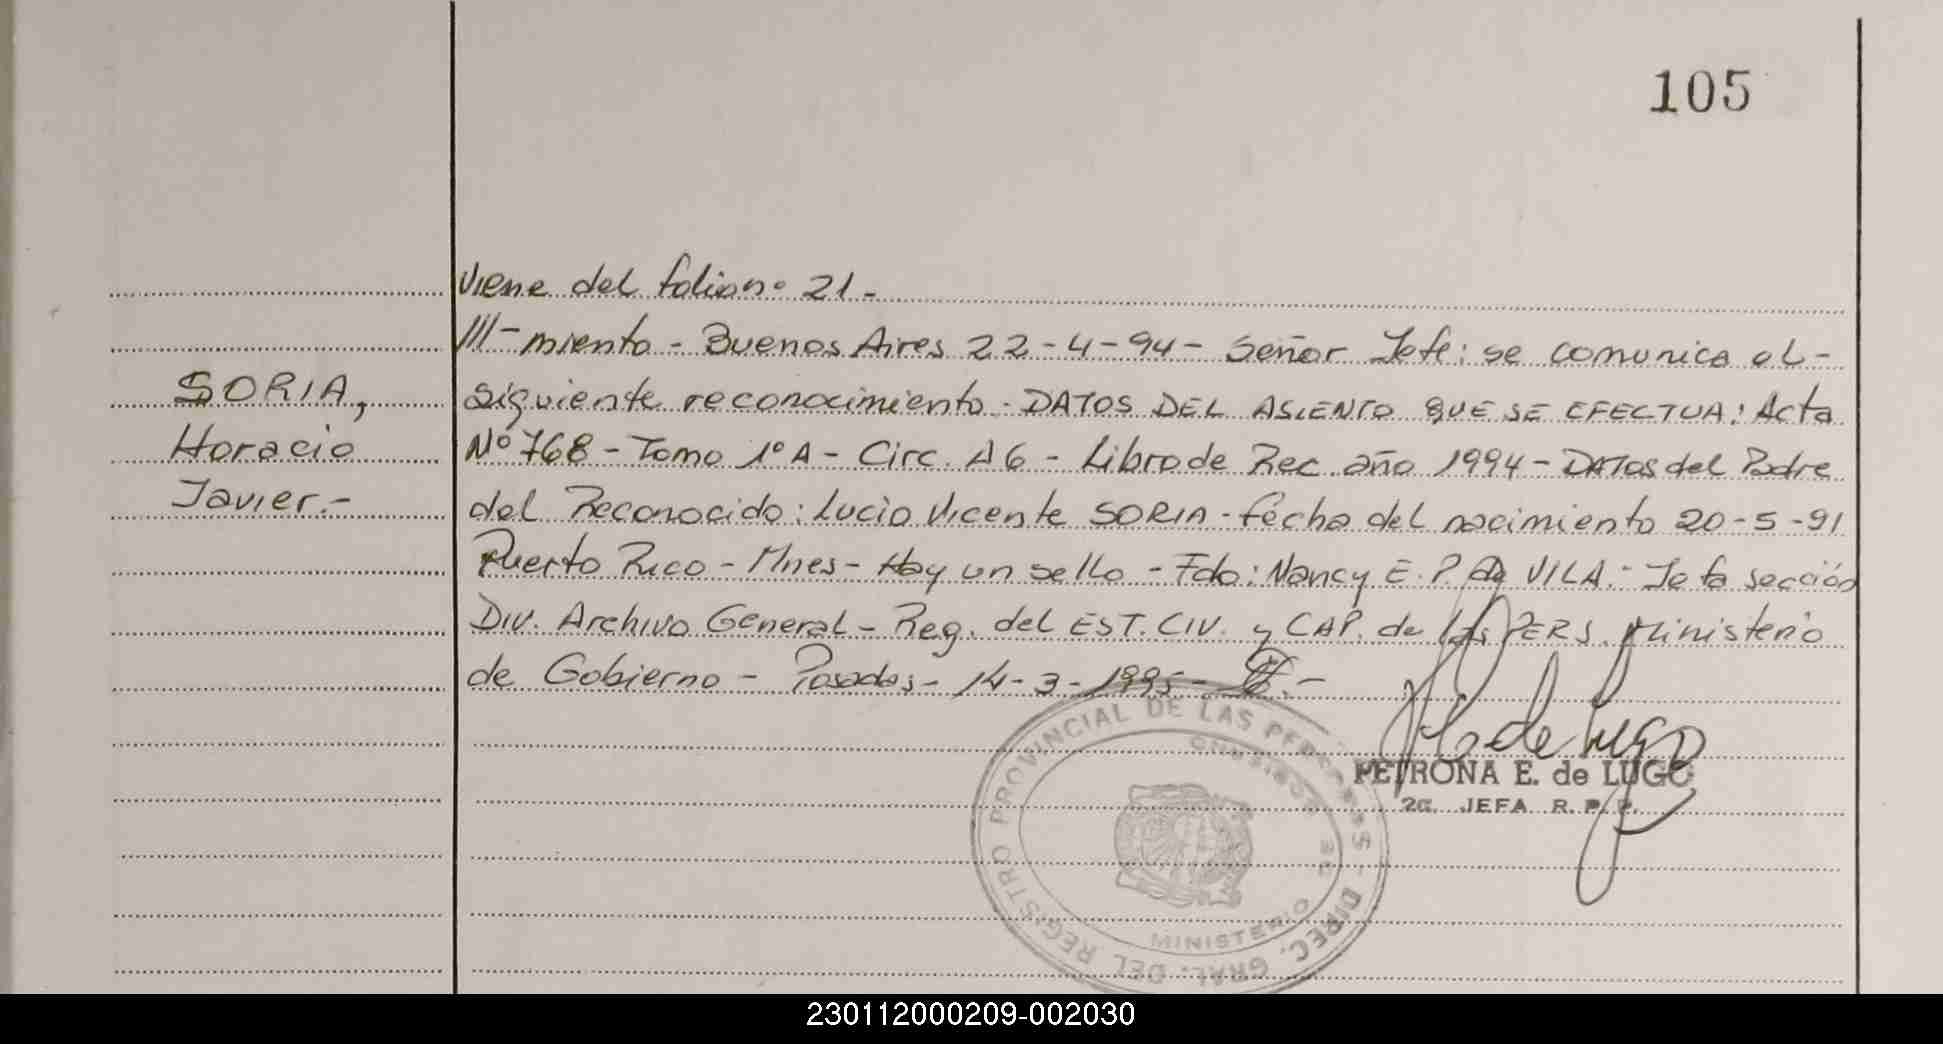 105
Viene del folio nº 21.-
///-miento - Buenos Aires 22-4-94 - Señor Jefe: se comunica el -
SORIA,
siguiente reconocimiento - DATOS DEL ASIENTO QUE SE EFECTUA: Acta
Horacio
Nº 768 - Tomo 1º A - Circ. A6 - Libro de Rec. año 1994 - DATOS del Padre
Javier.-
del Reconocido: Lucio Vicente SORIA - fecha del nacimiento 20-5-91
Puerto Rico - Mnes - Hay un sello - Fdo: Nancy E. P. VILA.- Jefa sección
Div. Archivo General - Reg. del EST. CIV. y CAP. de las PERS. Ministerio
de Gobierno - Posadas - 14-3-1995 -
PETRONA E. de LUGO
2a. JEFA R. P. P.
DIREC. GRAL. DEL REGISTRO PROVINCIAL DE LAS PERSONAS
MINISTERIO DE
230112000209-002030